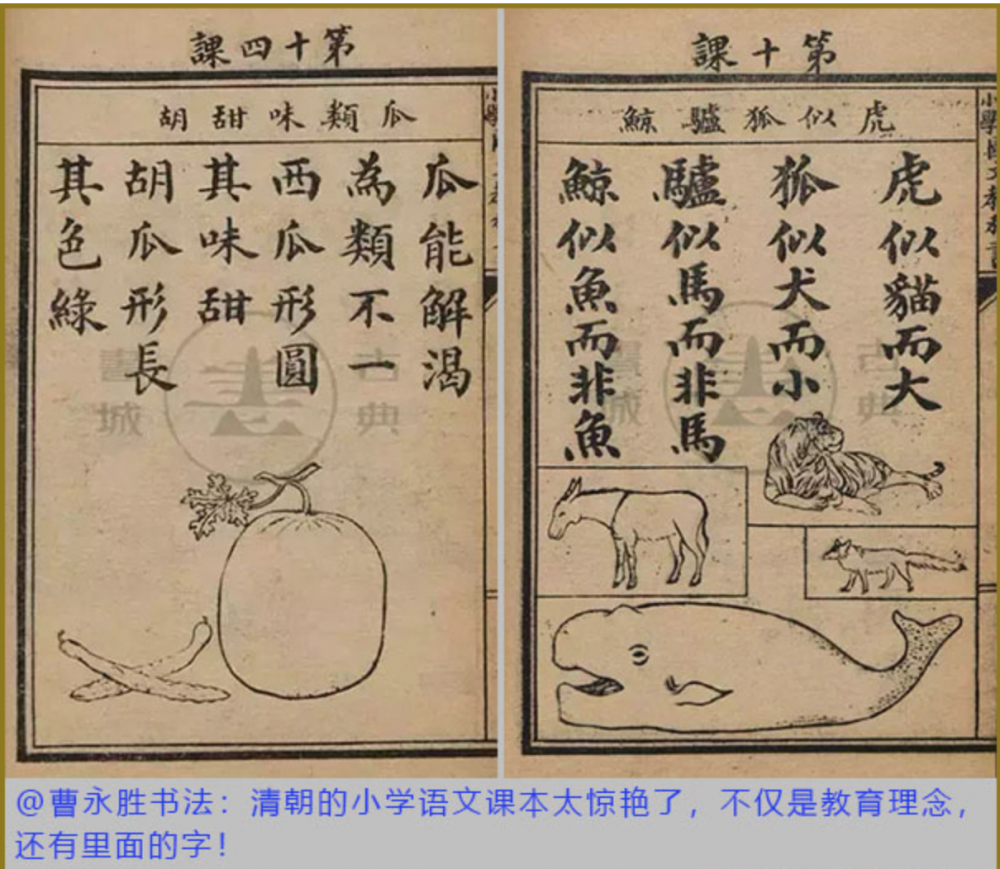 第十課
虎似狐驢鯨
虎似貓而大
狐似犬而小
驢似馬而非馬
鯨似魚而非魚
第十四課
瓜類味甜胡
瓜能解渴
為類不一
西瓜形圓
其味甜
胡瓜形長
其色綠
古典
書城
古典
書城
@曹永胜书法：清朝的小学语文课本太惊艳了，不仅是教育理念，
还有里面的字！